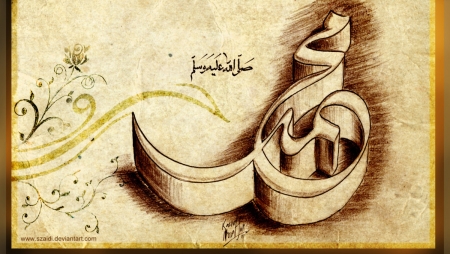 صَلَّى اللهُ عَلَيْهِ وَسَلَّمَ
محمد
www.szaidi.deviantart.com